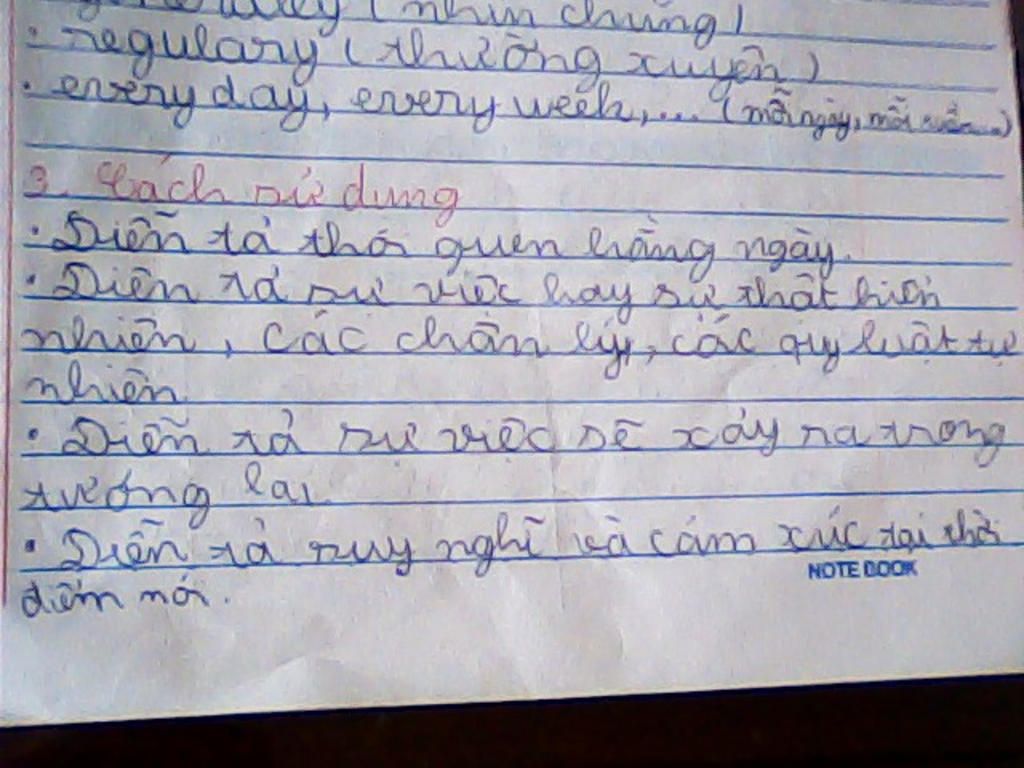 (nhìn chung)
• regulary (thường xuyên)
• every day, every week,... (mỗi ngày, mỗi tuần...)
3. Cách sử dụng
• Diễn tả thói quen hằng ngày.
• Diễn tả sự việc hay sự thật hiển
nhiên, các chân lý, các quy luật tự
nhiên
• Diễn tả sự việc sẽ xảy ra trong
tương lai
• Diễn tả suy nghĩ và cảm xúc tại thời
điểm nói.
NOTE BOOK